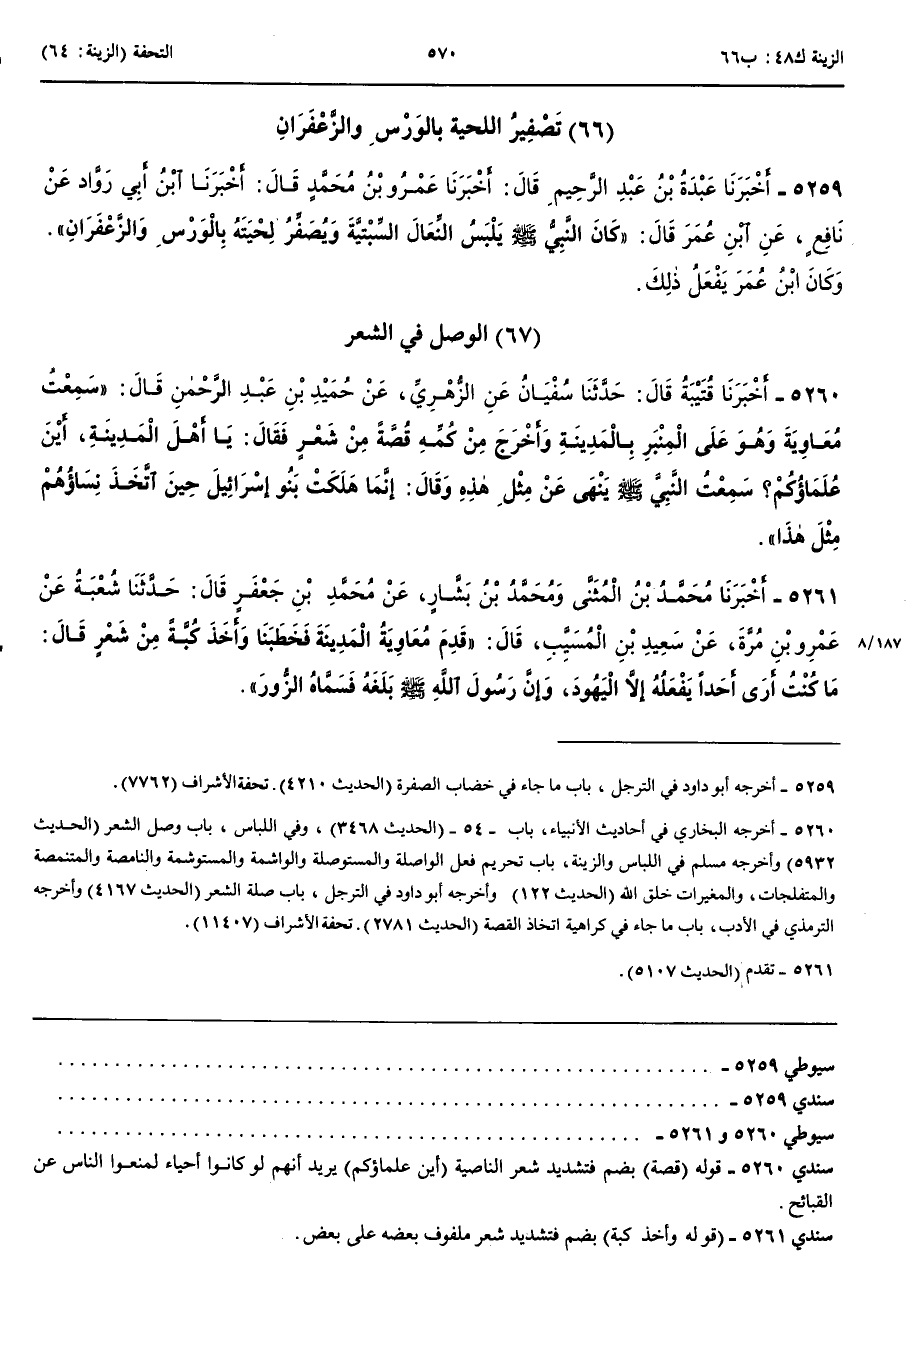 الزينة ك٤٨: ب٦٦ ٥٧٠ التحفة (الزينة: ٦٤)
(٦٦) تَصْفِيرُ اللحية بالوَرْسِ والزَّعْفَرَانِ
٥٢٥٩ - أَخْبَرَنَا عَبْدَةُ بْنُ عَبْدِ الرَّحِيمِ قَالَ: أَخْبَرَنَا عَمْرُو بْنُ مُحَمَّدٍ قَالَ: أَخْبَرَنَا ٱبْنُ أَبِي رَوَّادٍ عَنْ
نَافِعٍ، عَنِ ٱبْنِ عُمَرَ قَالَ: «كَانَ النَّبِيُّ ﷺ يَلْبَسُ النِّعَالَ السِّبْتِيَّةَ وَيُصَفِّرُ لِحْيَتَهُ بِالْوَرْسِ وَالزَّعْفَرَانِ».
وَكَانَ ابْنُ عُمَرَ يَفْعَلُ ذٰلِكَ.
(٦٧) الوصل في الشعر
٥٢٦٠ - أَخْبَرَنَا قُتَيْبَةُ قَالَ: حَدَّثَنَا سُفْيَانُ عَنِ الزُّهْرِيِّ، عَنْ حُمَيْدِ بْنِ عَبْدِ الرَّحْمٰنِ قَالَ: «سَمِعْتُ
مُعَاوِيَةَ وَهُوَ عَلَى الْمِنْبَرِ بِالْمَدِينَةِ وَأَخْرَجَ مِنْ كُمِّهِ قُصَّةً مِنْ شَعْرٍ فَقَالَ: يَا أَهْلَ الْمَدِينَةِ، أَيْنَ
عُلَمَاؤُكُمْ؟ سَمِعْتُ النَّبِيَّ ﷺ يَنْهَى عَنْ مِثْلِ هٰذِهِ وَقَالَ: إِنَّمَا هَلَكَتْ بَنُو إِسْرَائِيلَ حِينَ ٱتَّخَذَ نِسَاؤُهُمْ
مِثْلَ هٰذَا».
٥٢٦١ - أَخْبَرَنَا مُحَمَّدُ بْنُ الْمُثَنَّى وَمُحَمَّدُ بْنُ بَشَّارٍ، عَنْ مُحَمَّدِ بْنِ جَعْفَرٍ قَالَ: حَدَّثَنَا شُعْبَةُ عَنْ
٨/١٨٧ عَمْرِو بْنِ مُرَّةَ، عَنْ سَعِيدِ بْنِ الْمُسَيَّبِ، قَالَ: «قَدِمَ مُعَاوِيَةُ الْمَدِينَةَ فَخَطَبَنَا وَأَخَذَ كُبَّةً مِنْ شَعْرٍ قَالَ:
مَا كُنْتُ أَرَى أَحَداً يَفْعَلُهُ إِلَّا الْيَهُودَ، وَإِنَّ رَسُولَ ٱللَّهِ ﷺ بَلَغَهُ فَسَمَّاهُ الزُّورَ».
٥٢٥٩ - أخرجه أبو داود في الترجل، باب ما جاء في خضاب الصفرة (الحديث ٤٢١٠). تحفة الأشراف (٧٧٦٢).
٥٢٦٠ - أخرجه البخاري في أحاديث الأنبياء، باب - ٥٤ - (الحديث ٣٤٦٨)، وفي اللباس، باب وصل الشعر (الحديث
٥٩٣٢) وأخرجه مسلم في اللباس والزينة، باب تحريم فعل الواصلة والمستوصلة والواشمة والمستوشمة والنامصة والمتنمصة
والمتفلجات، والمغيرات خلق الله (الحديث ١٢٢) وأخرجه أبو داود في الترجل، باب صلة الشعر (الحديث ٤١٦٧) وأخرجه
الترمذي في الأدب، باب ما جاء في كراهية اتخاذ القصة (الحديث ٢٧٨١). تحفة الأشراف (١١٤٠٧).
٥٢٦١ - تقدم (الحديث ٥١٠٧).
سيوطي ٥٢٥٩ - ........................................
سندي ٥٢٥٩ - ........................................
سيوطي ٥٢٦٠ و ٥٢٦١ - ........................................
سندي ٥٢٦٠ - قوله (قصة) بضم فتشديد شعر الناصية (أين علماؤكم) يريد أنهم لو كانوا أحياء لمنعوا الناس عن
القبائح.
سندي ٥٢٦١ - (قوله وأخذ كبة) بضم فتشديد شعر ملفوف بعضه على بعض.